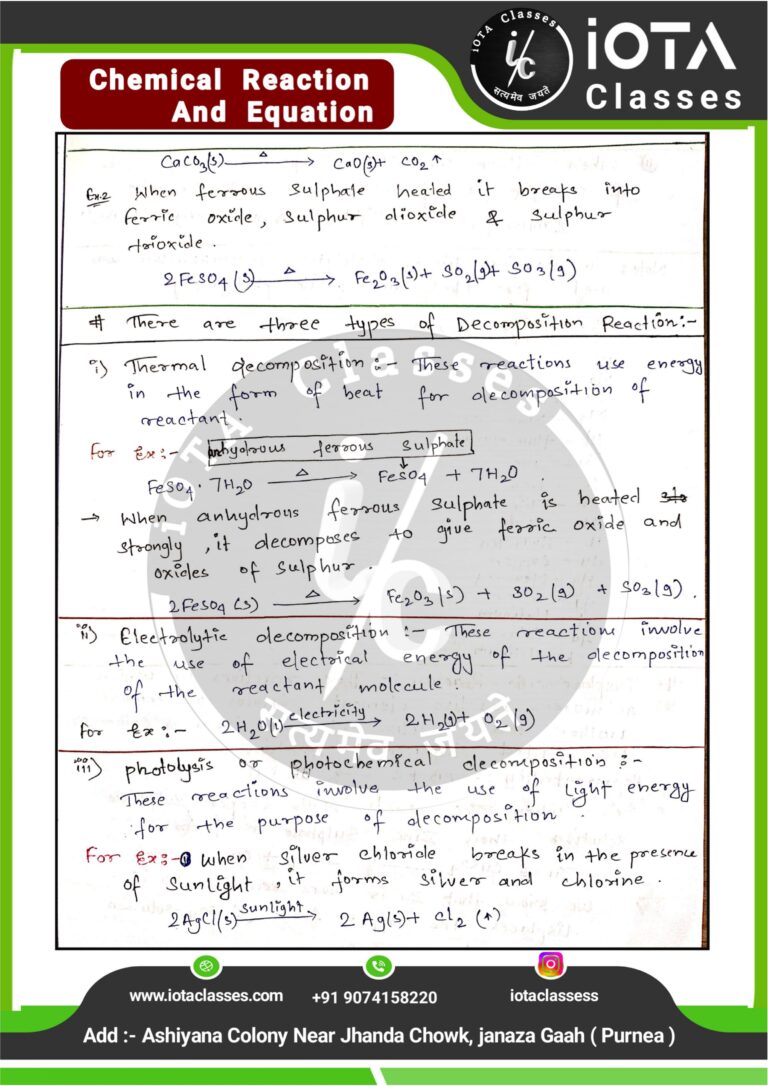 iOTA Classes
i/c
सत्यमेव जयते
iOTA
Classes
Chemical Reaction
And Equation
CaCO₃(s) —Δ→ CaO(s) + CO₂↑
Ex.2 When ferrous sulphate heated it breaks into
ferric oxide, sulphur dioxide & sulphur
trioxide.
2FeSO₄(s) —Δ→ Fe₂O₃(s) + SO₂(g) + SO₃(g)
# There are three types of Decomposition Reaction:-
i) Thermal decomposition :- These reactions use energy
in the form of heat for decomposition of
reactant.
For Ex:- anhydrous ferrous sulphate
FeSO₄·7H₂O —Δ→ FeSO₄ + 7H₂O.
→ When anhydrous ferrous sulphate is heated
strongly, it decomposes to give ferric oxide and
oxides of sulphur.
2FeSO₄(s) —Δ→ Fe₂O₃(s) + SO₂(g) + SO₃(g).
ii) Electrolytic decomposition :- These reactions involve
the use of electrical energy of the decomposition
of the reactant molecule.
For Ex:- 2H₂O(l) —electricity→ 2H₂(g) + O₂(g)
iii) photolysis or photochemical decomposition :-
These reactions involve the use of light energy
for the purpose of decomposition.
For Ex:-① When silver chloride breaks in the presence
of sunlight, it forms silver and chlorine.
2AgCl(s) —Sunlight→ 2Ag(s) + Cl₂(↑)
iOTA Classes
i/c
सत्यमेव जयते
www.iotaclasses.com +91 9074158220 iotaclassess
Add :- Ashiyana Colony Near Jhanda Chowk, janaza Gaah ( Purnea )